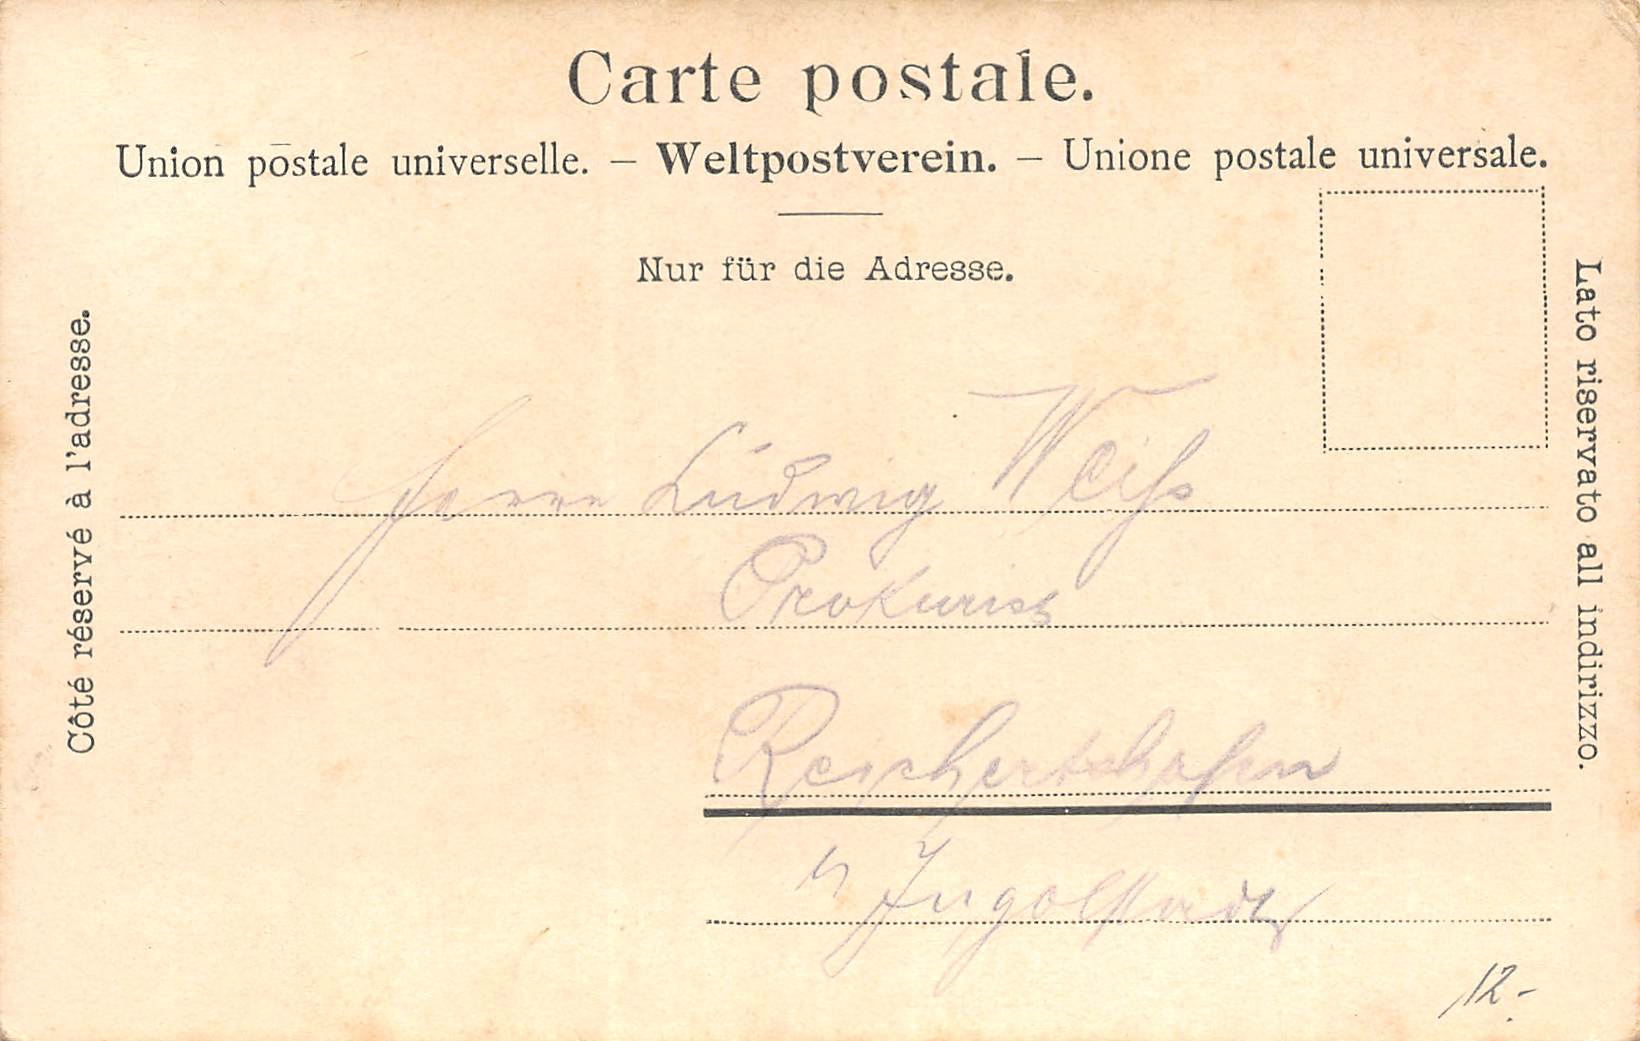 Carte postale.
Union postale universelle. – Weltpostverein. – Unione postale universale.
Nur für die Adresse.
Côté réservé à l'adresse.
Lato riservato all indirizzo.
Herrn Ludwig Weiß
Prokurist
Reichertshofen
b/ Ingolstadt
12.-